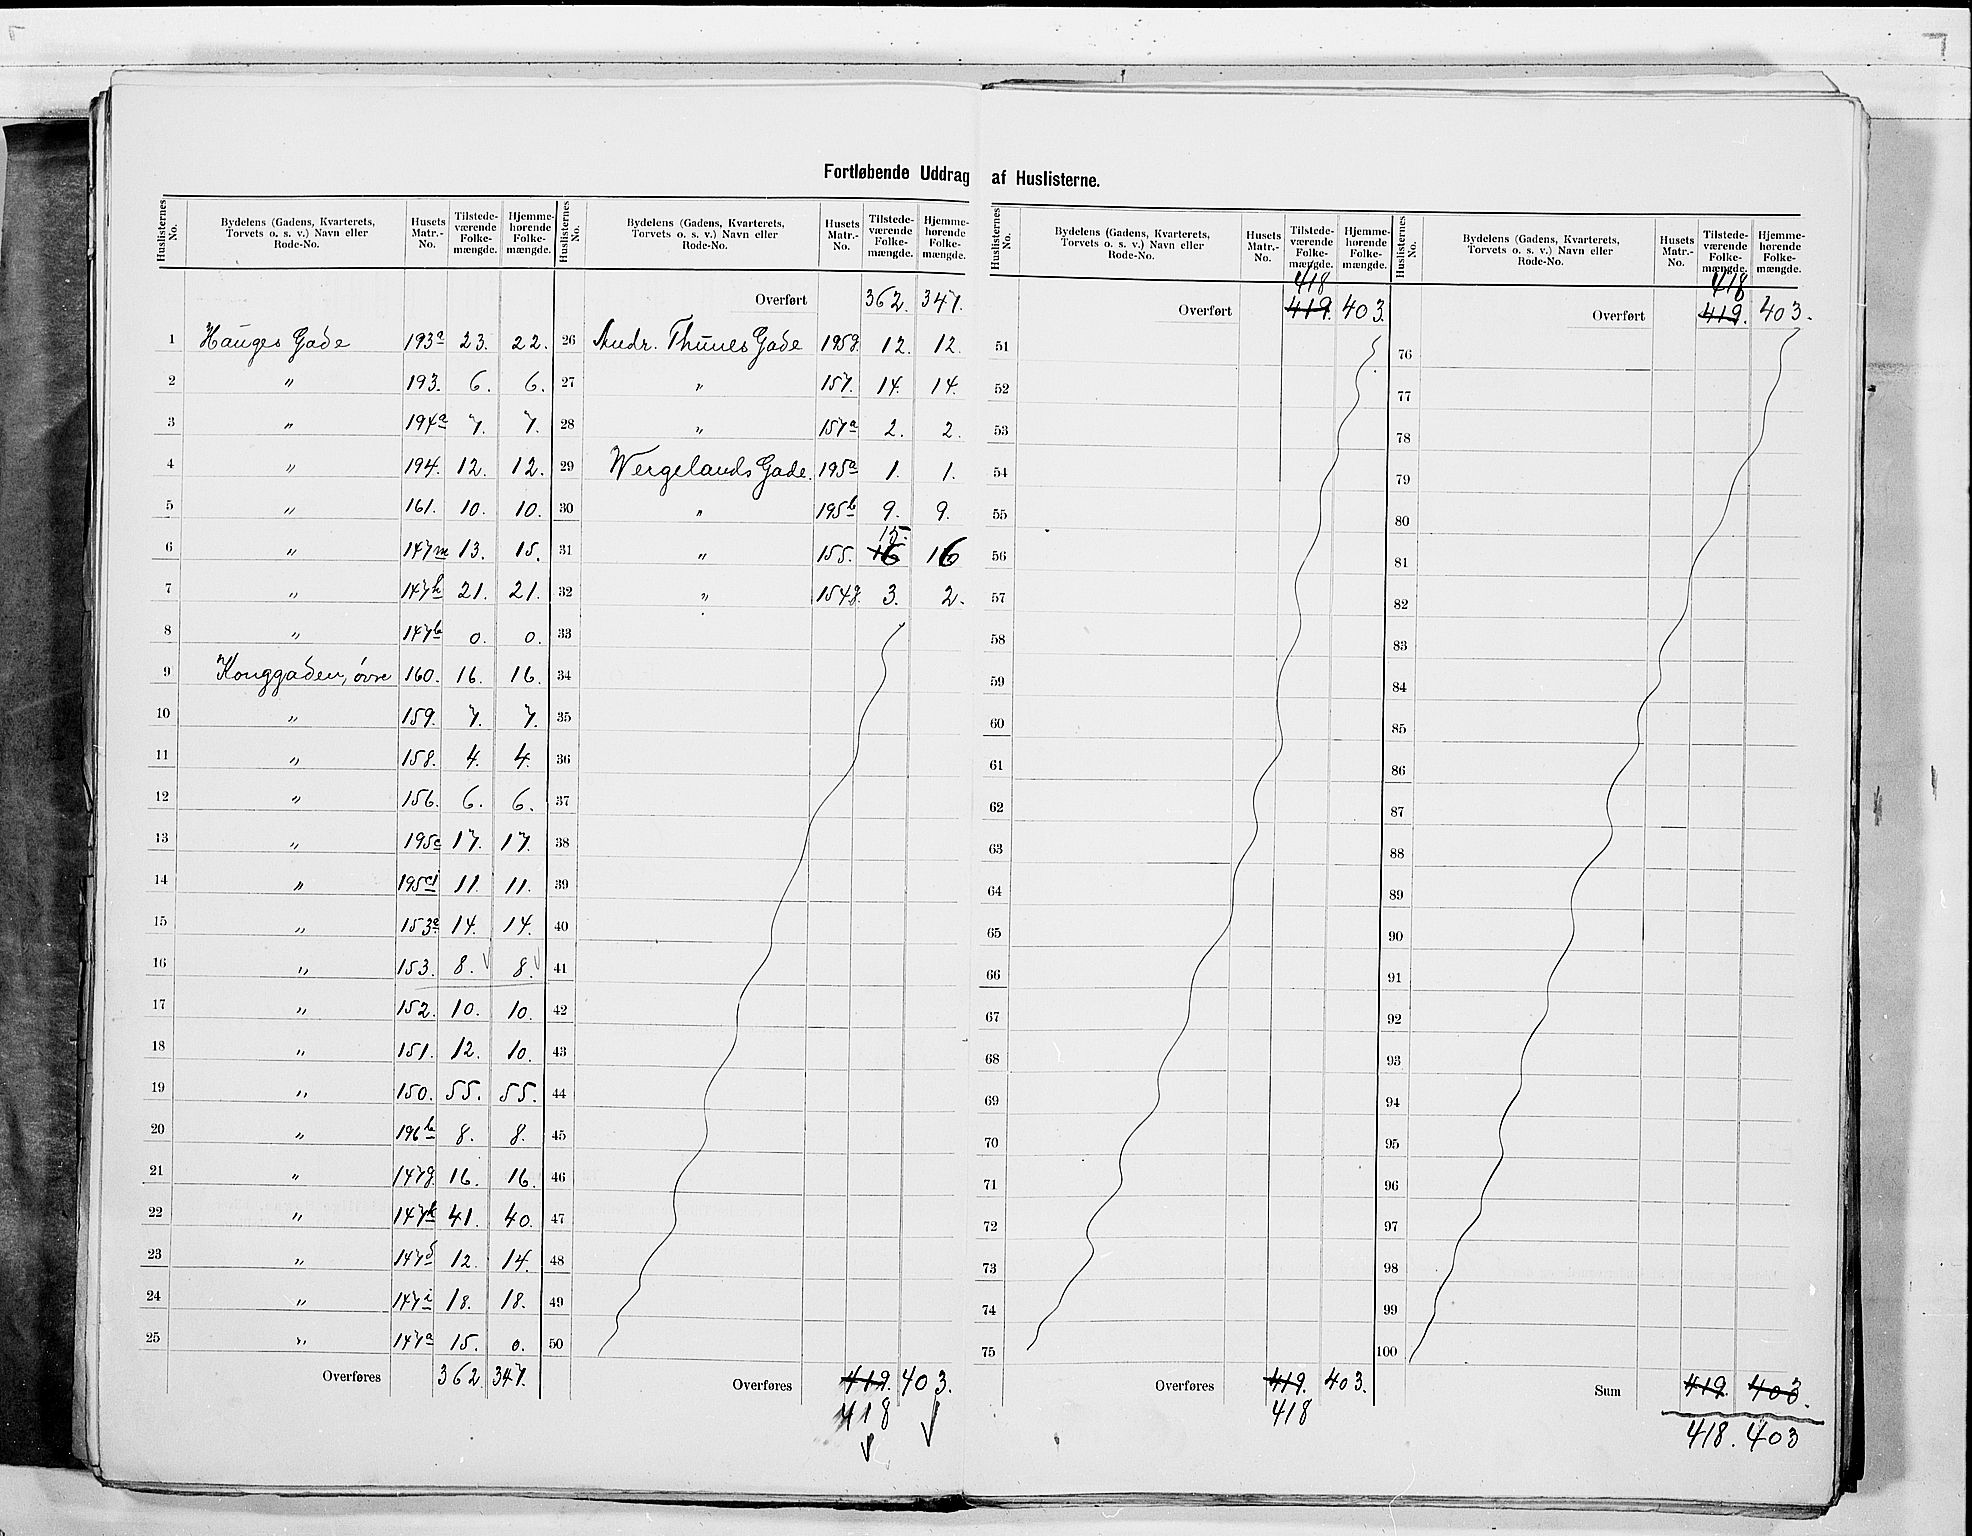 Fortløbende Uddrag af Huslisterne.
Huslisternes No. Bydelens (Gadens, Kvarterets, Torvets o. s. v.) Navn eller Rode-No. Husets Matr.-No. Tilstedeværende Folkemængde. Hjemmehørende Folkemængde.
1 Hauges Gade 193a 23. 22.
2 " 193. 6. 6.
3 " 194a 7. 7.
4 " 194. 12. 12.
5 " 161. 10. 10.
6 " 147m 13. 15.
7 " 147h 21. 21.
8 " 147b 0. 0.
9 Konggaden, övre 160. 16. 16.
10 " 159. 7. 7.
11 " 158. 4. 4.
12 " 156. 6. 6.
13 " 195c 17. 17.
14 " 11. 11.
15 " 153a 14. 14.
16 " 153. 8. 8.
17 " 152. 10. 10.
18 " 151. 12. 10.
19 " 150. 55. 55.
20 " 196b 8. 8.
21 " 147g. 16. 16.
22 " 147k 41. 40.
23 " 147d 12. 14.
24 " 147i 18. 18.
25 " 147a 15. 0.
Overføres 362. 347.
Huslisternes No. Bydelens (Gadens, Kvarterets, Torvets o. s. v.) Navn eller Rode-No. Husets Matr.-No. Tilstedeværende Folkemængde. Hjemmehørende Folkemængde.
Overført 362. 347.
26 Andr. Thunes Gade 195g. 12. 12.
27 " 157. 14. 14.
28 " 157a 2. 2.
29 Wergelands Gade. 195a 1. 1.
30 " 195b 9. 9.
15.
31 " 155. 16 16
32 " 154g. 3. 2.
33
34
35
36
37
38
39
40
41
42
43
44
45
46
47
48
49
50
Overføres 419. 403.
418
Huslisternes No. Bydelens (Gadens, Kvarterets, Torvets o. s. v.) Navn eller Rode-No. Husets Matr.-No. Tilstedeværende Folkemængde. Hjemmehørende Folkemængde.
418
Overført 419. 403.
51
52
53
54
55
56
57
58
59
60
61
62
63
64
65
66
67
68
69
70
71
72
73
74
75
Overføres 419. 403.
418
Huslisternes No. Bydelens (Gadens, Kvarterets, Torvets o. s. v.) Navn eller Rode-No. Husets Matr.-No. Tilstedeværende Folkemængde. Hjemmehørende Folkemængde.
418
Overført 419. 403.
76
77
78
79
80
81
82
83
84
85
86
87
88
89
90
91
92
93
94
95
96
97
98
99
100
Sum 419. 403.
418. 403